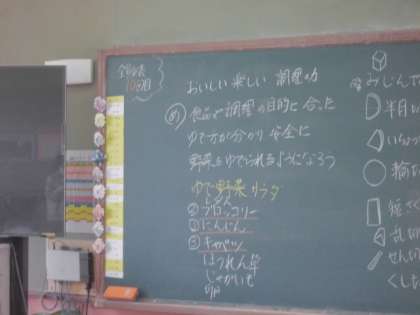 おいしい楽しい調理の力
め 食品や調理の目的に合った
ゆで方が分かり安全に
野菜をゆでられるようになろう
ゆで野菜サラダ
② ブロッコリー
① にんじん
③ キャベツ
ほうれん草
じゃがいも
卵
みじん
半月
いちょう
輪
短ざく
乱切
せん切